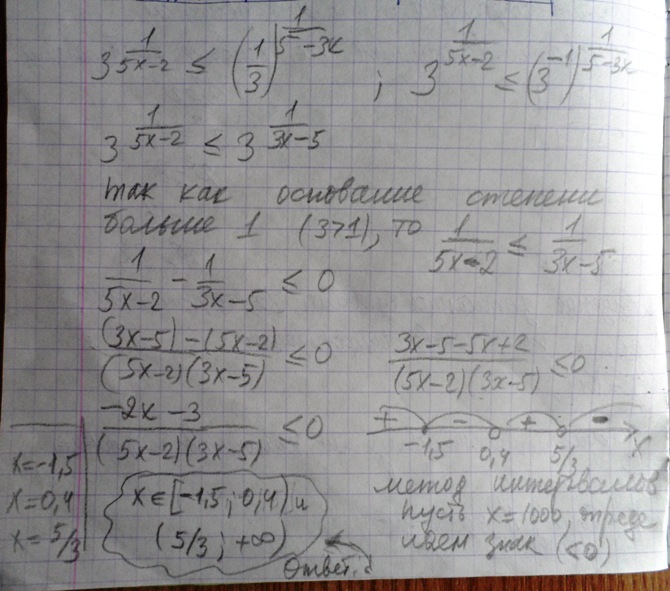 3^(1/(5x-2)) ≤ (1/3)^(1/(5-3x)) ; 3^(1/(5x-2)) ≤ (3^(-1))^(1/(5-3x))
3^(1/(5x-2)) ≤ 3^(1/(3x-5))
так как основание степени
больше 1 (3>1), то 1/(5x-2) ≤ 1/(3x-5)
1/(5x-2) - 1/(3x-5) ≤ 0
((3x-5)-(5x-2))/((5x-2)(3x-5)) ≤ 0
(3x-5-5x+2)/((5x-2)(3x-5)) ≤ 0
(-2x-3)/((5x-2)(3x-5)) ≤ 0
+ - + -
-1,5 0,4 5/3 x
x=-1,5
x=0,4
x=5/3
x∈[-1,5; 0,4) и
(5/3; +∞)
Ответ.
метод интервалов
пусть x=1000, опреде
ляем знак (<0)